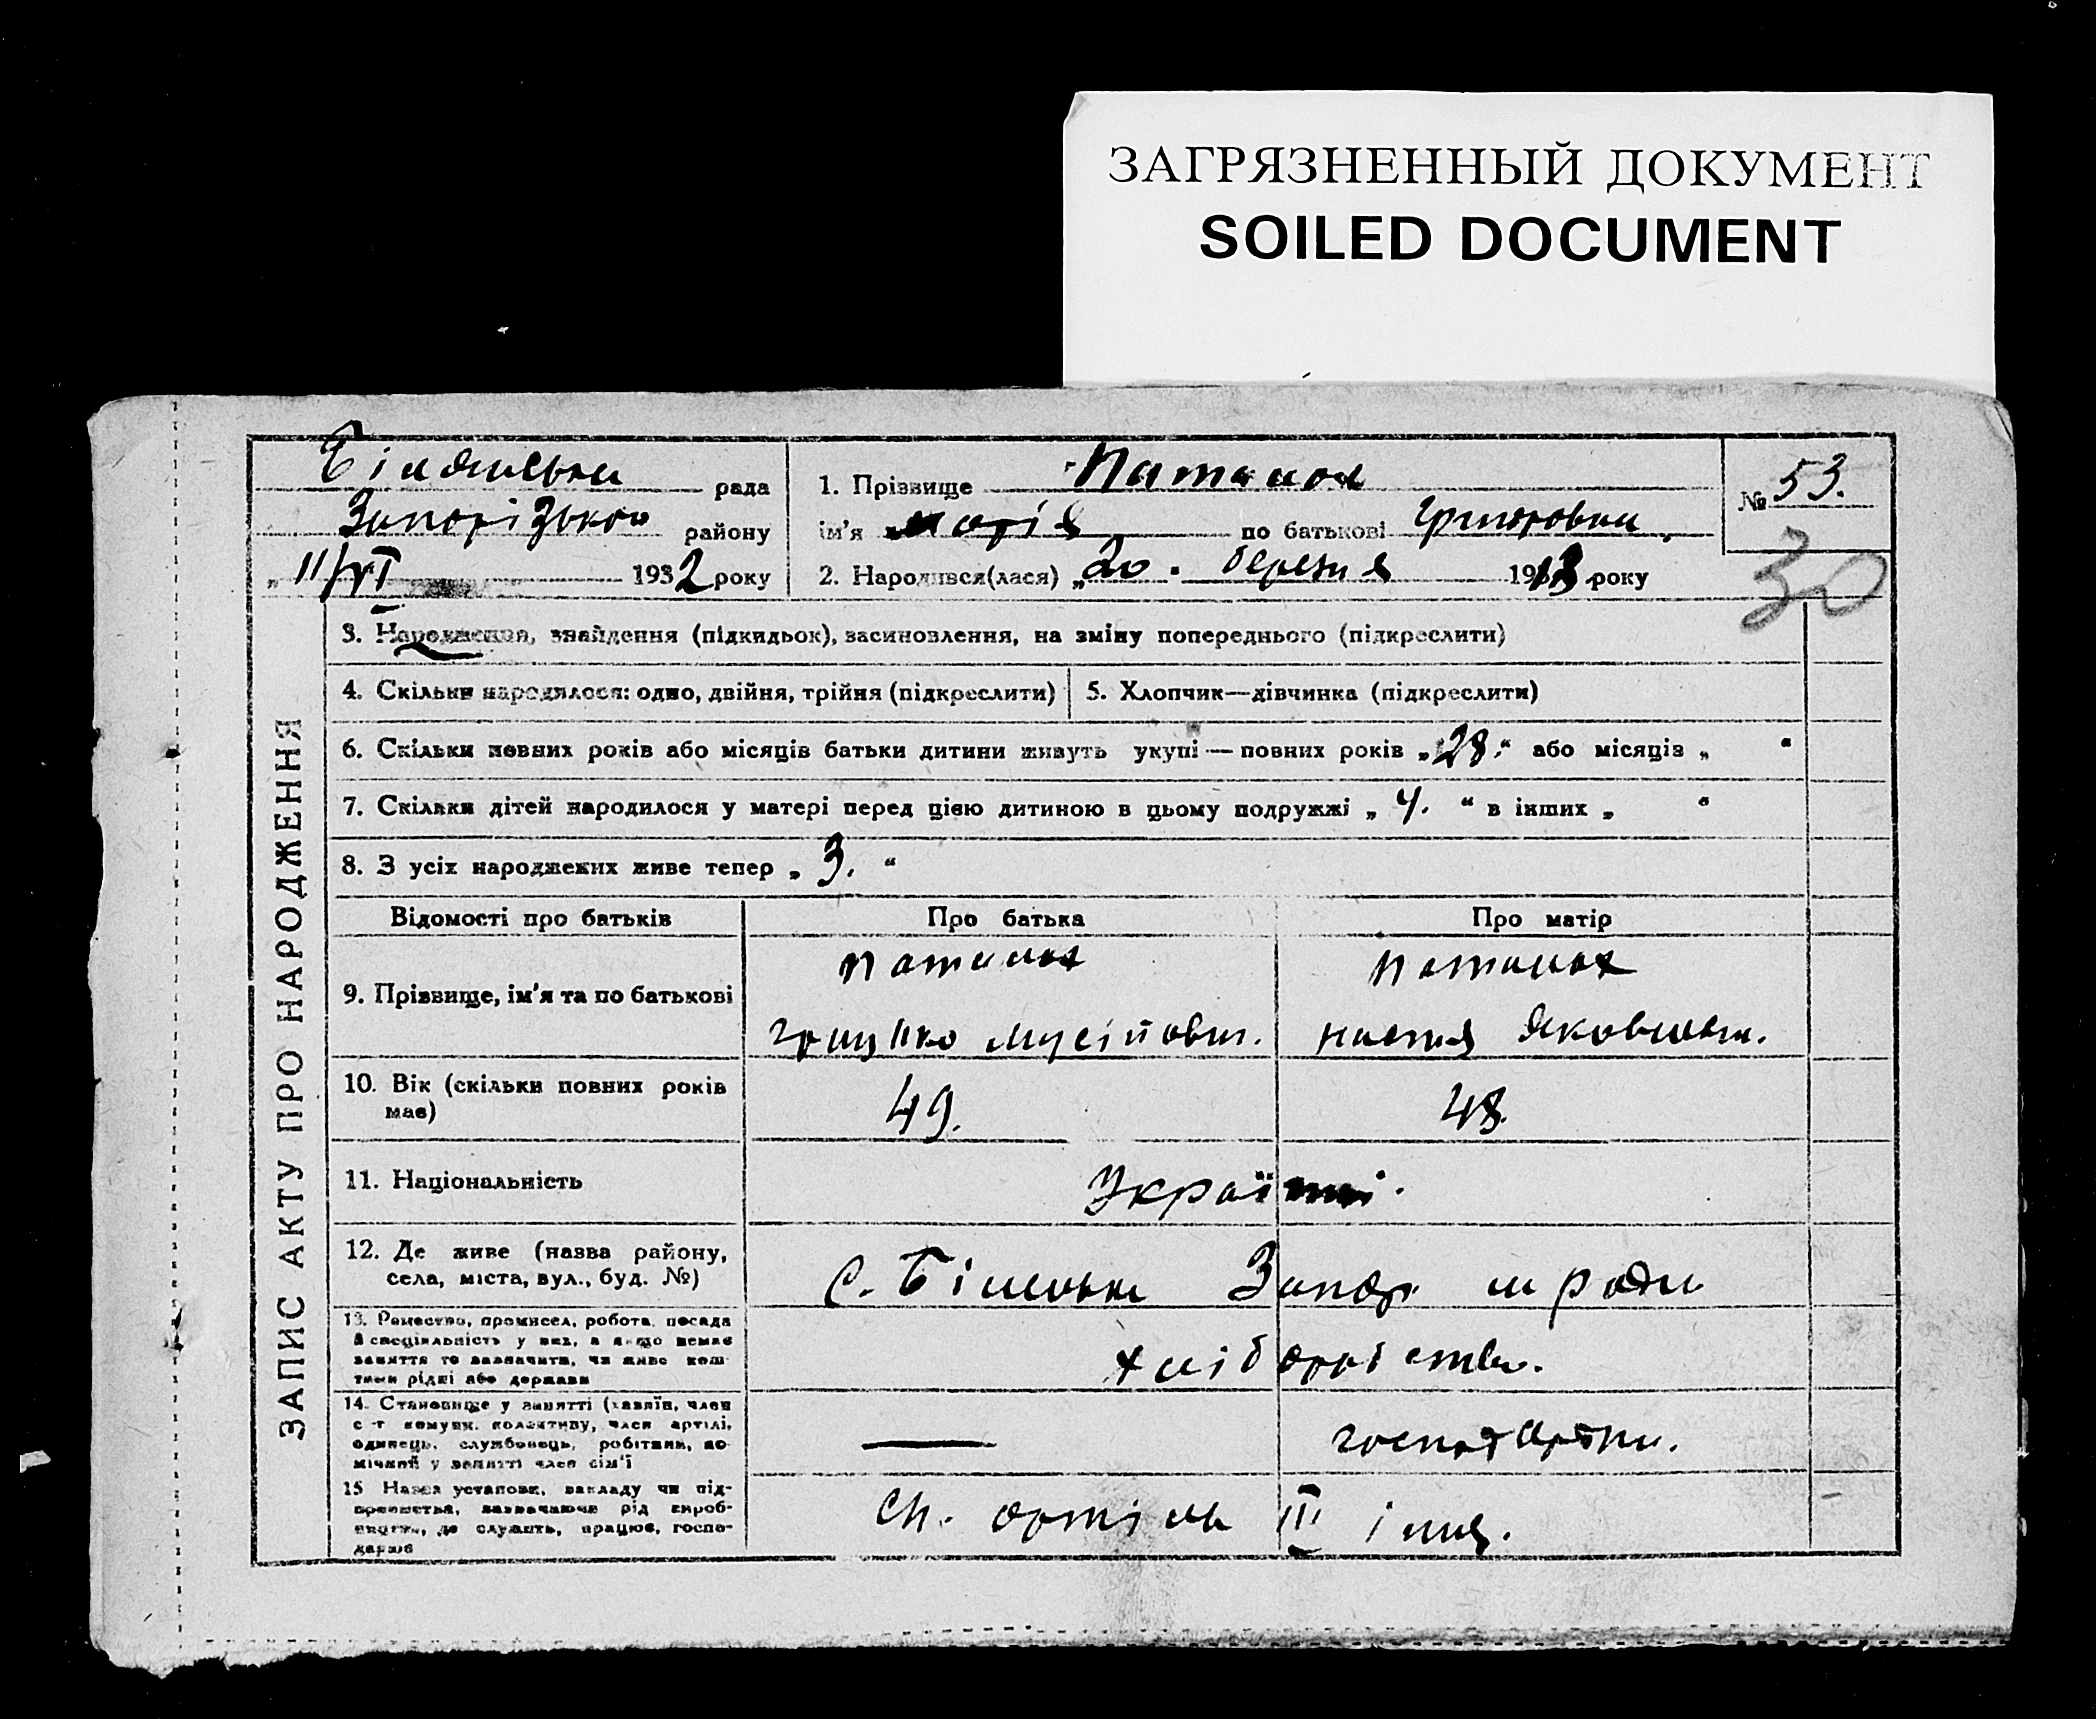 ЗАГРЯЗНЕННЫЙ ДОКУМЕНТ
SOILED DOCUMENT
рада
району
„ 11/VI 1932 року
1. Прізвище
ім'я Марія по батькові
2. Народився(лася) „20. березня 1913 року
№ 53.
30
ЗАПИС АКТУ ПРО НАРОДЖЕННЯ
3. Народження, знайдення (підкидьок), засиновлення, на зміну попереднього (підкреслити)
4. Скільки народилося: одно, двійня, трійня (підкреслити)
5. Хлопчик—дівчинка (підкреслити)
6. Скільки повних років або місяців батьки дитини живуть укупі — повних років „28.“ або місяців „ “
7. Скільки дітей народилося у матері перед цією дитиною в цьому подружжі „ 4. “ в інших „ “
8. З усіх народжених живе тепер „ 3. “
Відомості про батьків
Про батька
Про матір
9. Прізвище, ім'я та по батькові
Мусійович.
настя Яковлевн.
10. Вік (скільки повних років
має)
49.
48.
11. Національність
Україн
12. Де живе (назва району,
села, міста, вул., буд. №)
с. Біленьке Запор м ради
13. Ремество, промисел, робота, посада
й спеціяльність у них, а якщо немає
заняття то зазначити, чи живе кош-
тами рідні або держави
14. Становище у занятті (хазяїн, член
с-г комуни, колективу, член артілі,
одинець, службовець, робітник, по-
мічний у занятті член сім'ї
15 Назва установи, закладу чи під-
приємства, зазначаючи рід вироб-
ництва, де служить, працює, госпо-
дарює
артіль III інт.